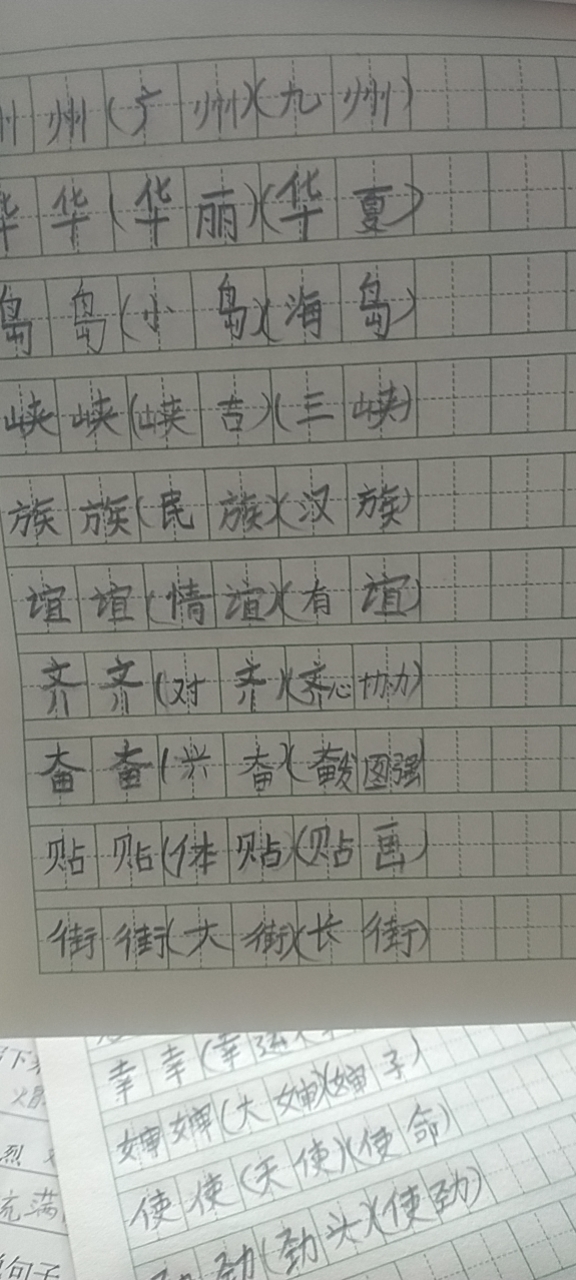 州 州 (广 州)(九 州)
华 华 (华 丽)(华 夏)
岛 岛 (小 岛)(海 岛)
峡 峡 (峡 吉)(三 峡)
族 族 (民 族)(汉 族)
谊 谊 (情 谊)(有 谊)
齐 齐 (对 齐)(齐心协力)
奋 奋 (兴 奋)(奋发图强)
贴 贴 (体 贴)(贴 画)
街 街 (大 街)(长 街)
幸 幸 (幸 运
婶 婶 (大 婶)(婶 子)
使 使 (天 使)(使 命)
劲 (劲 头)(使 劲)
烈
充 满
句子